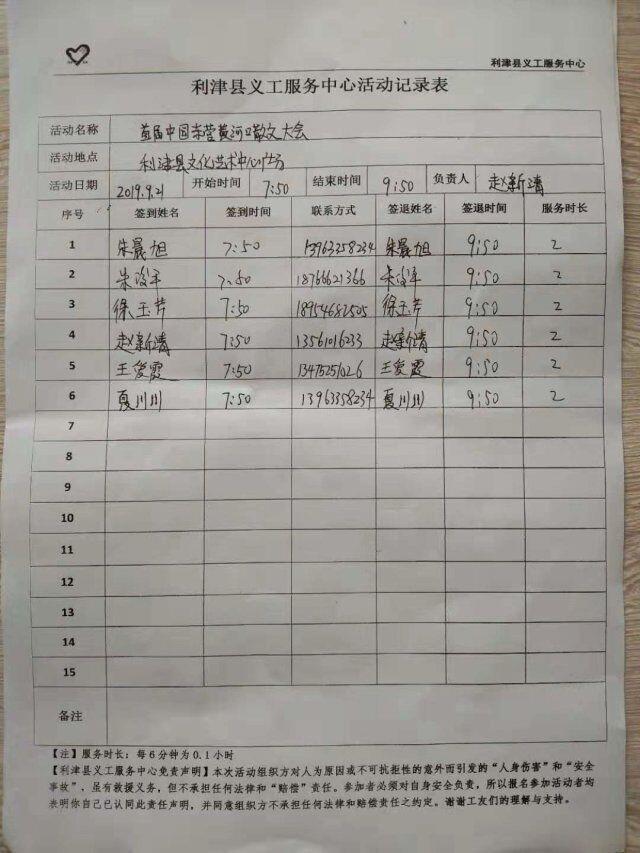 利津县义工服务中心
利津县义工服务中心活动记录表
活动名称 首届中国东营黄河口散文大会
活动地点 利津县文化艺术中心广场
活动日期 2019.9.21 开始时间 7:50 结束时间 9:50 负责人 赵新清
序号 签到姓名 签到时间 联系方式 签退姓名 签退时间 服务时长
1 朱晨旭 7:50 13963258234 朱晨旭 9:50 2
2 朱俊平 7:50 18766621366 朱俊平 9:50 2
3 徐玉芹 7:50 18954682505 徐玉芹 9:50 2
4 赵新清 7:50 13561016233 赵新清 9:50 2
5 王爱霞 7:50 13475251026 王爱霞 9:50 2
6 夏川川 7:50 13963358234 夏川川 9:50 2
7
8
9
10
11
12
13
14
15
备注
【注】服务时长：每6分钟为0.1小时
【利津县义工服务中心免责声明】本次活动组织方对人为原因或不可抗拒性的意外而引发的“人身伤害”和“安全
事故”，虽有救援义务，但不承担任何法律和“赔偿”责任。参加者必须对自身安全负责，所以报名参加活动者均
表明你自己已认同此责任声明，并同意组织方不承担任何法律和赔偿责任之约定。谢谢工友们的理解与支持。